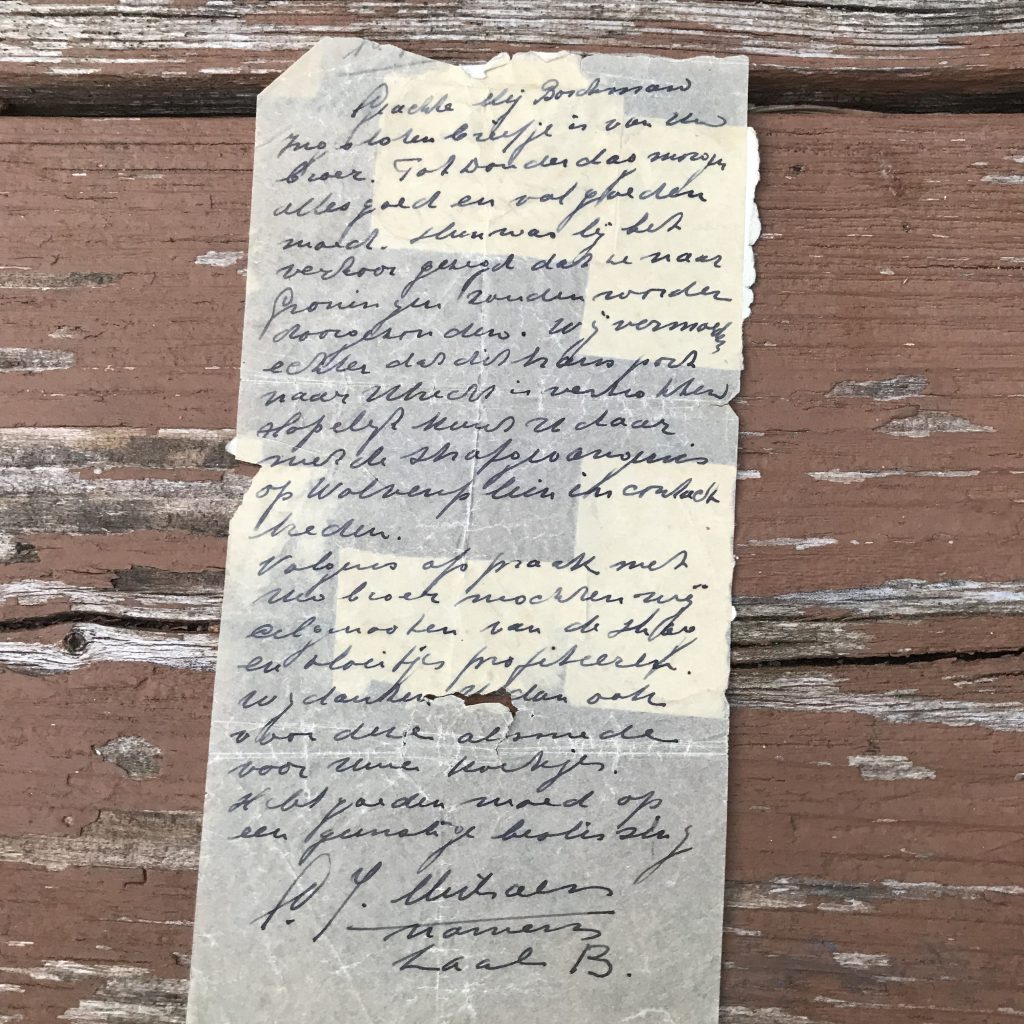 Geachte Mej Borchman
Ingesloten briefje is van Uw
broer. Tot Donderdag morgen
alles goed en vol goeden
moed. Hun was bij het
verhoor gezegd dat ze naar
Groningen zouden worden
doorgezonden. Wij vermoeden
echter dat dit transport
naar Utrecht is vertrokken
Hopelijk kunt U daar
met de strafgevangenis
op Wolvenplein in contact
treden.
Volgens afspraak met
Uw broer mochten wij
celgenooten van de
en profiteeren.
Wij danken U dan ook
voor deze alsmede
voor Uwe koekjes.
Hebt goeden moed op
een gunstige beslissing
P. J.
namens
Zaal B.